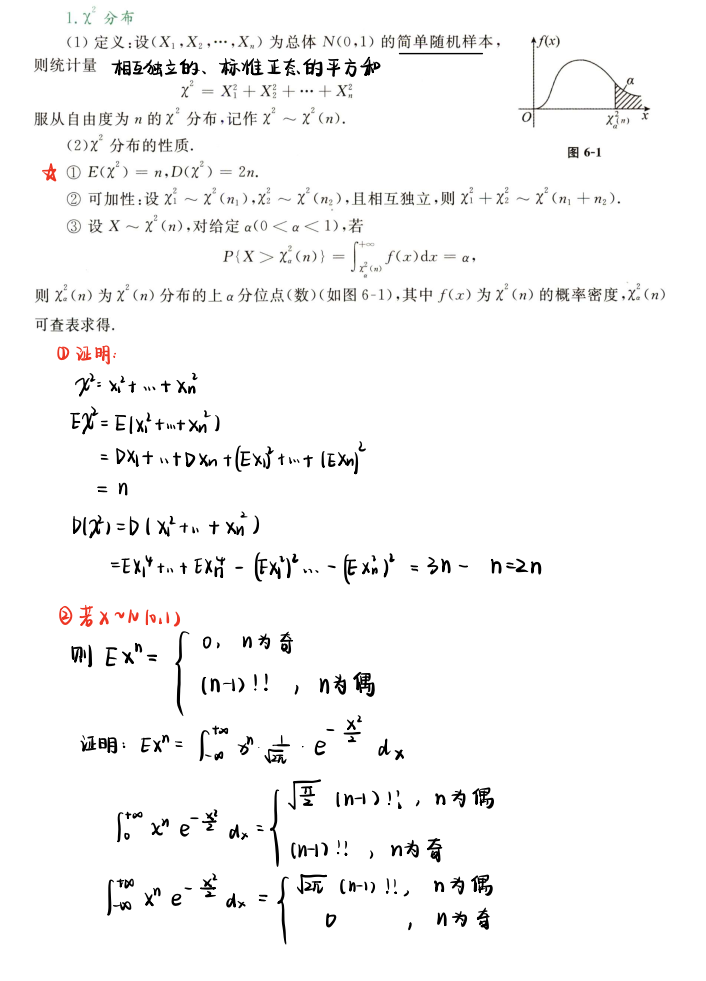 1. χ² 分布
(1) 定义:设(X₁,X₂,⋯,Xₙ)为总体 N(0,1)的简单随机样本,
则统计量 相互独立的、标准正态的平方和
χ² = X₁² + X₂² + ⋯ + Xₙ²
服从自由度为 n 的 χ² 分布,记作 χ² ~ χ²(n).
f(x)
α
O χ²_α(n) x
图 6-1
(2) χ² 分布的性质.
☆ ① E(χ²) = n,D(χ²) = 2n.
② 可加性:设 χ₁² ~ χ²(n₁),χ₂² ~ χ²(n₂),且相互独立,则 χ₁² + χ₂² ~ χ²(n₁ + n₂).
③ 设 X ~ χ²(n),对给定 α(0 < α < 1),若
P{X > χ²_α(n)} = ∫_{χ²_α(n)}^{+∞} f(x)dx = α,
则 χ²_α(n) 为 χ²(n) 分布的上 α 分位点(数)(如图 6-1),其中 f(x) 为 χ²(n) 的概率密度,χ²_α(n)
可查表求得.
① 证明:
χ² = x₁² + ⋯ + Xₙ²
Eχ² = E(X₁² + ⋯ + Xₙ²)
= DX₁ + ⋯ + DXₙ + (EX₁)² + ⋯ + (EXₙ)²
= n
D(χ²) = D(X₁² + ⋯ + Xₙ²)
= EX₁⁴ + ⋯ + EXₙ⁴ - (EX₁²)² ⋯ - (EXₙ²)² = 3n - n = 2n
② 若 X ~ N(0,1)
则 EXⁿ = { 0, n为奇
(n-1)!! , n为偶
证明: EXⁿ = ∫_{-∞}^{+∞} xⁿ · 1/√2π · e^{-x²/2} dx
∫_0^{+∞} xⁿ e^{-x²/2} dx = { √(π/2) (n-1)!!, n为偶
(n-1)!! , n为奇
∫_{-∞}^{+∞} xⁿ e^{-x²/2} dx = { √2π (n-1)!!, n为偶
0 , n为奇